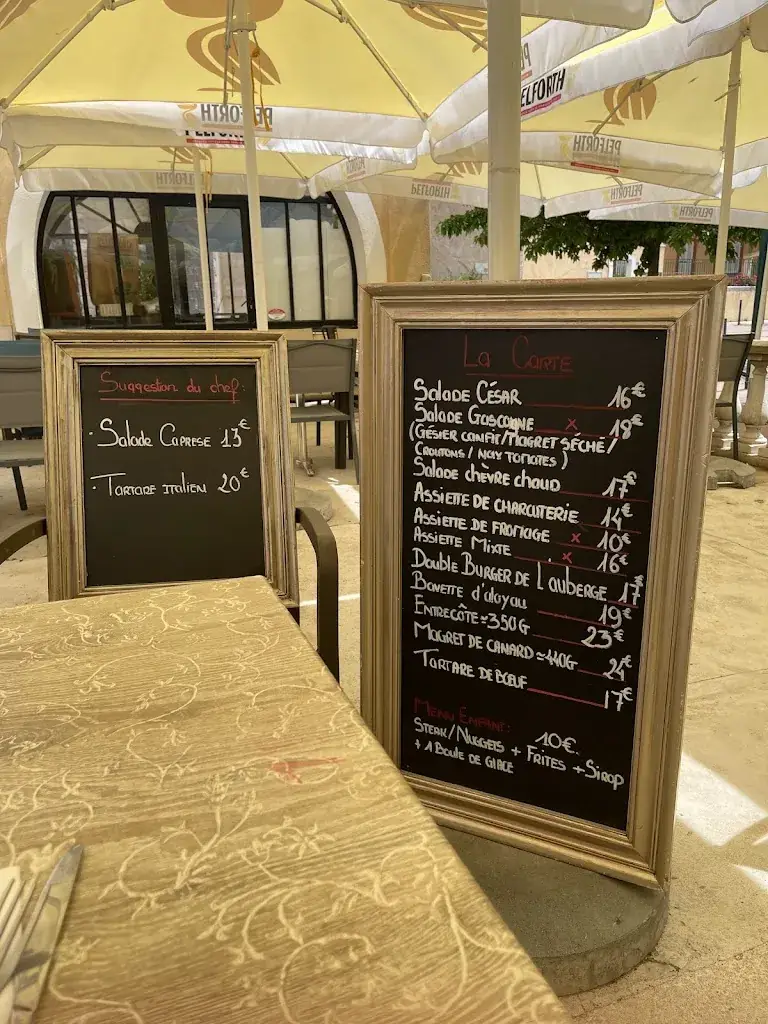 PELFORTH
PELFORTH
ELFORTH
PELFORTH
PELFORTH
PELFORTH
PELFORTH
PELFORTH
Suggestion du chef:
· Salade Caprese 13€
· Tartare italien 20€
La Carte
Salade César 16€
Salade Gascogne x 18€
(Gésier confit/Magret séché/
Croutons / Noix tomates)
Salade chèvre chaud 17€
Assiette de charcuterie 14€
Assiette de fromage x 10€
Assiette Mixte x 16€
Double Burger de L'auberge 17€
Bavette d'aloyau 19€
Entrecôte ≈350G 23€
Magret de canard ≈440G 24€
Tartare de bœuf 17€
Menu Enfant:
Steak/Nuggets + Frites + Sirop 10€
+ 1 Boule de glace